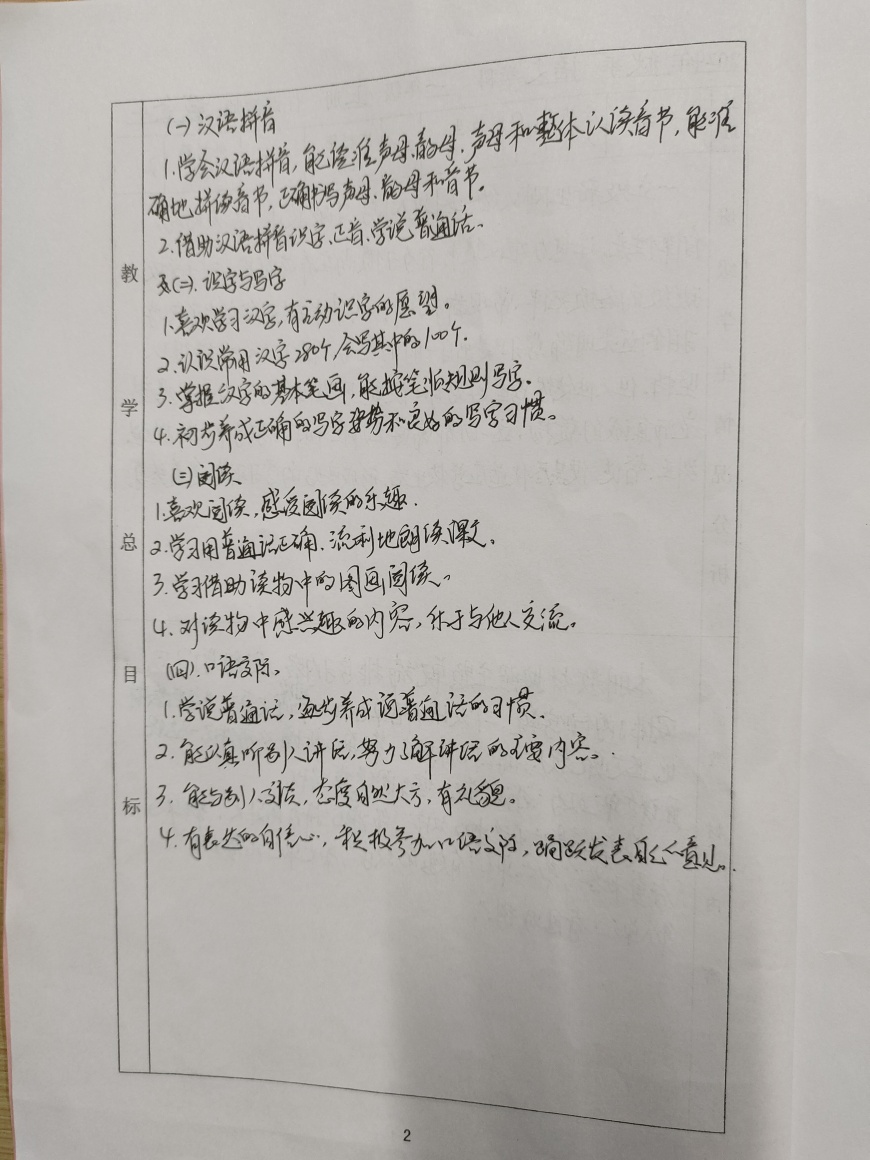 教学总目标
(一)汉语拼音
1.学会汉语拼音,能读准声母、韵母、声母和整体认读音节,能准
确地拼读音节,正确书写声母、韵母和音节。
2.借助汉语拼音识字、正音、学说普通话。
(二).识字与写字
1.喜欢学习汉字,有主动识字的愿望。
2.认识常用汉字280个,会写其中的100个.
3.掌握汉字的基本笔画,能按笔顺规则写字.
4.初步养成正确的写字姿势和良好的写字习惯。
(三)阅读
1.喜欢阅读,感受阅读的乐趣.
2.学习用普通话正确、流利地朗读课文。
3.学习借助读物中的图画阅读。
4、对读物中感兴趣的内容,乐于与他人交流。
(四).口语交际。
1.学说普通话,逐步养成说普通话的习惯.
2.能认真听别人讲话,努力了解讲话的主要内容。
3.能与别人交谈,态度自然大方,有礼貌。
4.有表达的自信心,积极参加口语交际,踊跃发表自己意见。
2